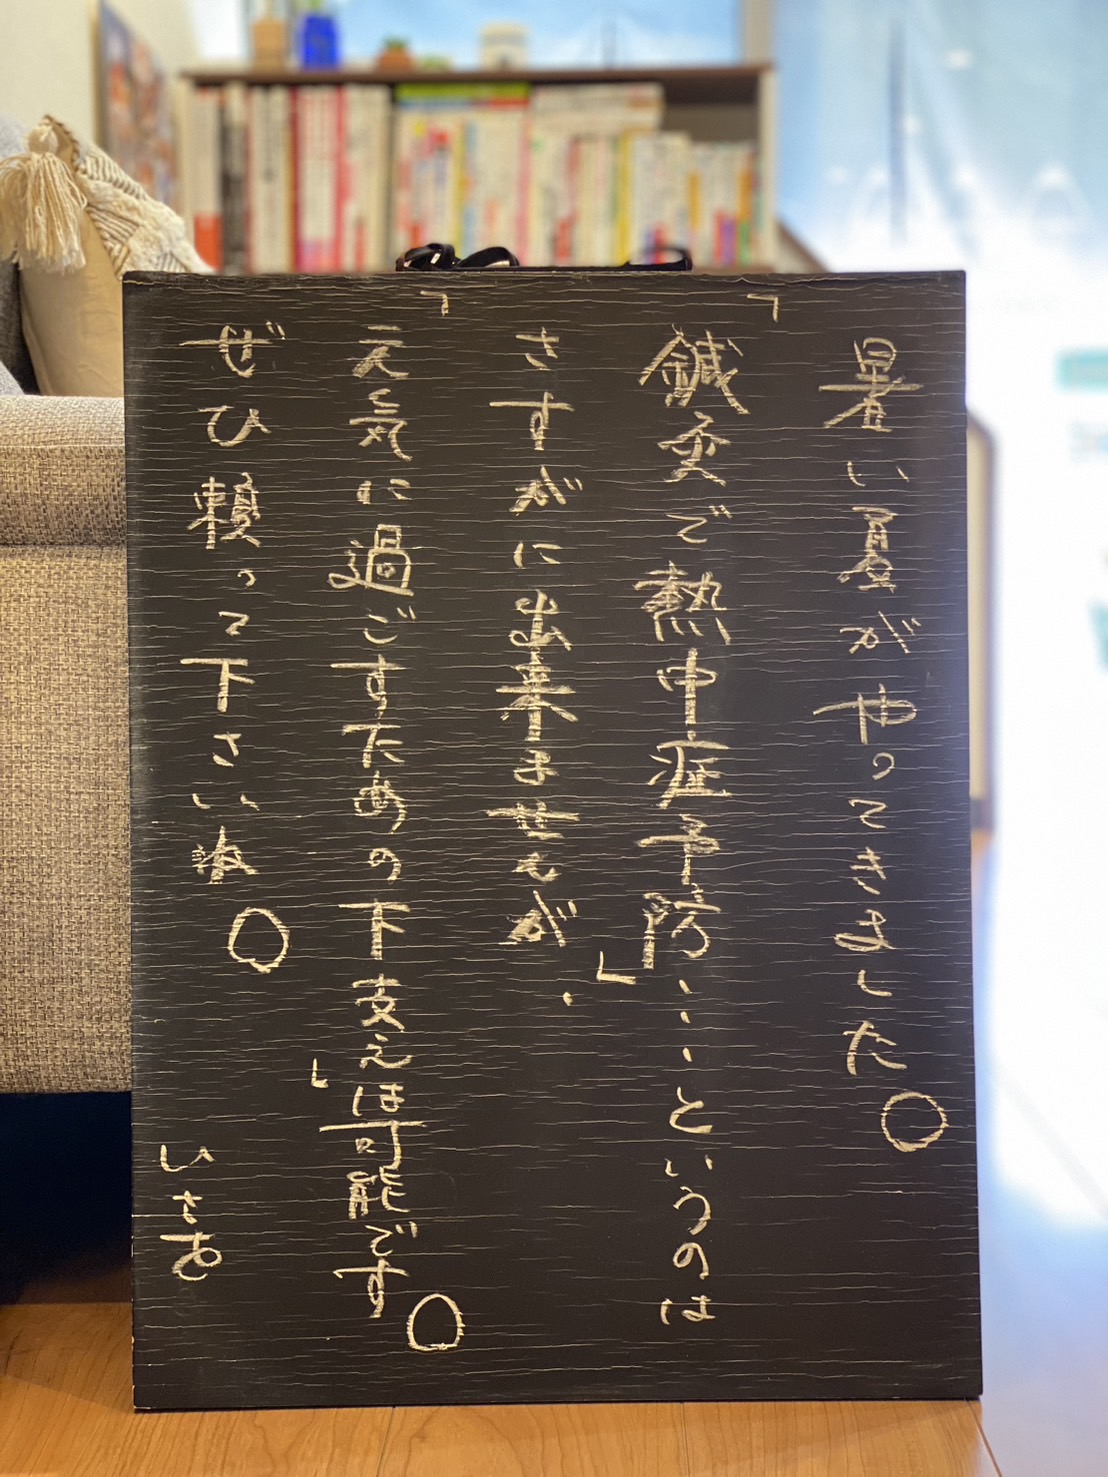 暑い夏がやってきました。
「鍼灸で熱中症予防」・・・というのは
さすがに出来ませんが、
「元気に過ごすための下支え」は可能です。
ぜひ頼って下さいね。
いさお